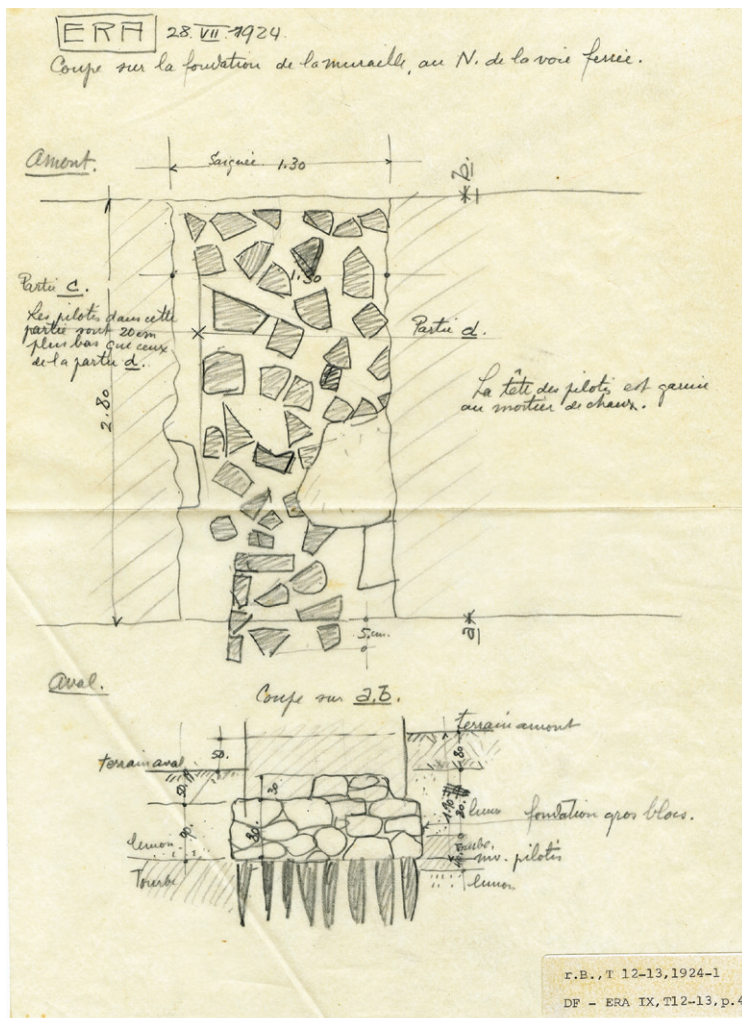 ERA 28.VII.1924
Coupe sur la fondation de la muraille, au N. de la voie ferrée.
Amont.
Saignée 1.30
b.
1.30
Partie c.
Les pilotis dans cette
partie sont 20 cm
plus bas que ceux
de la partie d.
Partie d.
La tête des pilotis est garnie
au mortier de chaux.
2.80
a
5 cm.
Aval.
Coupe sur a.b.
terrain amont
terrain aval
50.
50.
30
1.80
80.
limon
fondation gros blocs.
limon
90.
80
Tourbe
tourbe.
niv. pilotis
limon
r.B.,T 12-13,1924-1
DF - ERA IX,T12-13,p.4